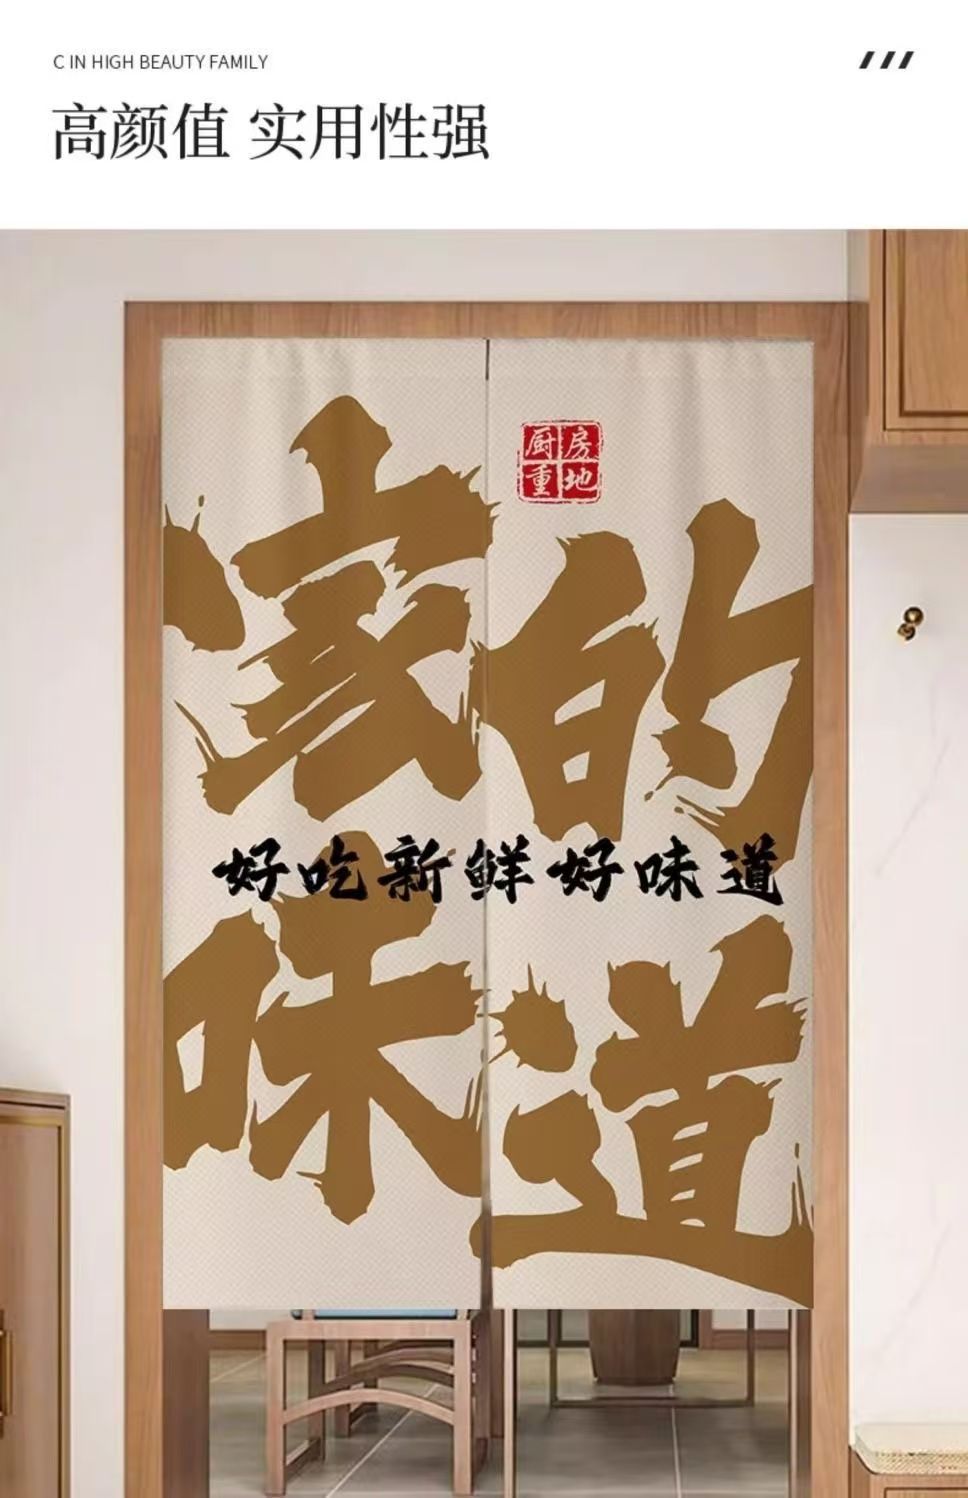 C IN HIGH BEAUTY FAMILY
高颜值 实用性强
厨房
重地
家的
好吃新鲜好味道
味道